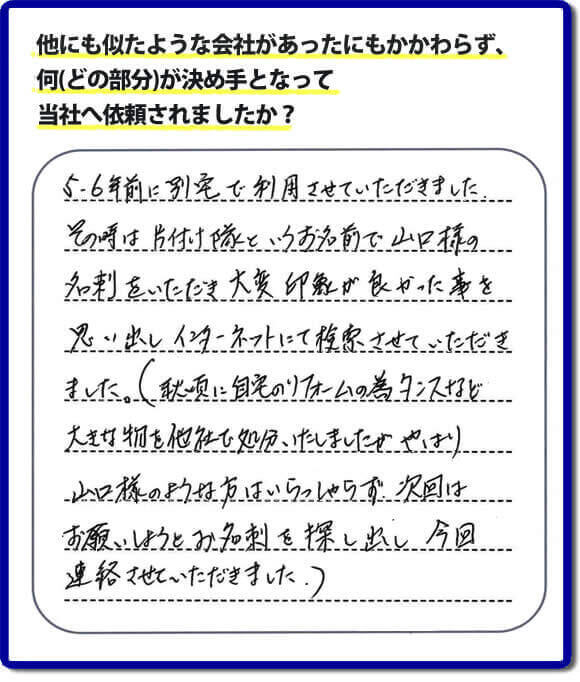 他にも似たような会社があったにもかかわらず、
何(どの部分)が決め手となって
当社へ依頼されましたか？
5-6年前に別宅で利用させていただきました.
その時は片付け隊というお名前で山口様の
名刺をいただき大変印象が良かった事を
思い出しインターネットにて検索させていただき
ました。(秋頃に自宅のリフォームの為タンスなど
大きな物を他社で処分いたしましたが やはり
山口様のような方はいらっしゃらず 次回は
お願いしようとお名刺を探し出し 今回
連絡させていただきました.)